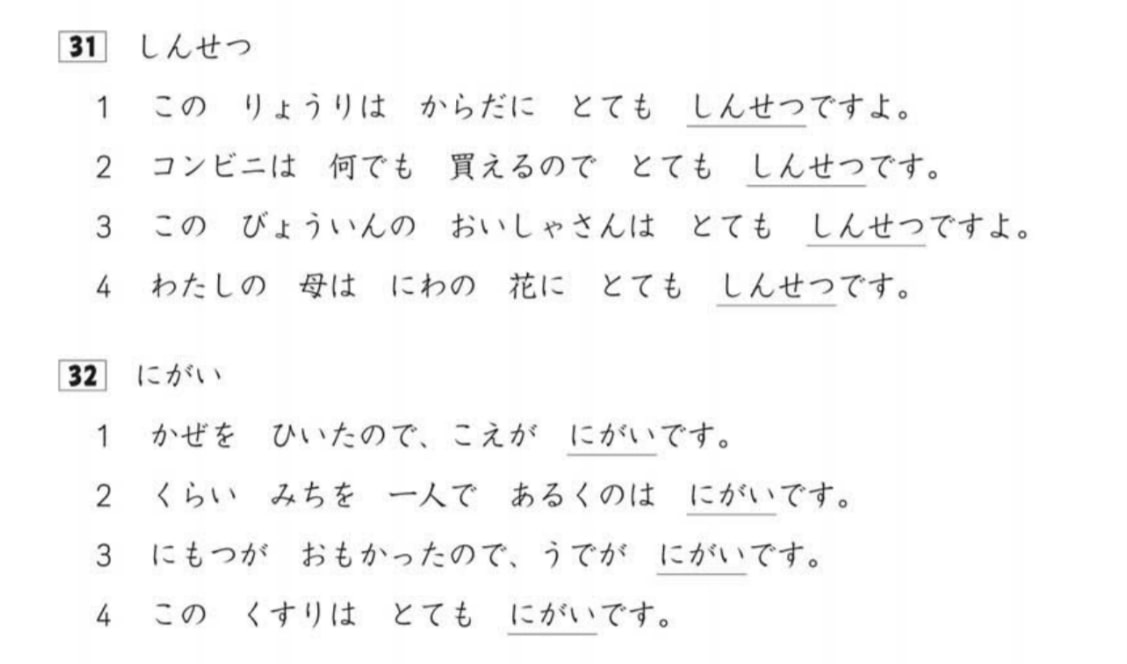 31 しんせつ
1 この りょうりは からだに とても しんせつですよ。
2 コンビニは 何でも 買えるので とても しんせつです。
3 この びょういんの おいしゃさんは とても しんせつですよ。
4 わたしの 母は にわの 花に とても しんせつです。
32 にがい
1 かぜを ひいたので、こえが にがいです。
2 くらい みちを 一人で あるくのは にがいです。
3 にもつが おもかったので、うでが にがいです。
4 この くすりは とても にがいです。